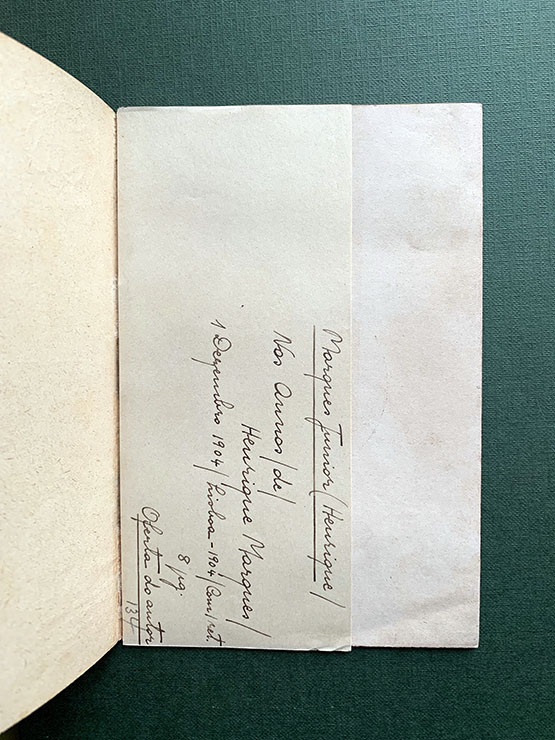 Marques Junior (Henrique)
Nos Annos/de/
Henrique Marques/
1 Dezembro 1904/Lisboa-1904/Com/ret.
8 pg.
Oferta do autor
134